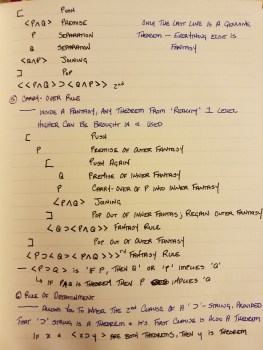 [ PUSH
<P∧Q> PREMISE ONLY THE LAST LINE IS A GENUINE
P SEPARATION THEOREM – EVERYTHING ELSE IS
Q SEPARATION FANTASY
<Q∧P> JOINING
] POP
<<P∧Q>⊃<Q∧P>> 2nd
⑤ CARRY-OVER RULE
– INSIDE A FANTASY, ANY THEOREM FROM 'REALITY' 1 LEVEL
HIGHER CAN BE BROUGHT IN & USED
[ PUSH
P PREMISE OF OUTER FANTASY
[ PUSH AGAIN
Q PREMISE OF INNER FANTASY
P CARRY-OVER OF P INTO INNER FANTASY
<P∧Q> JOINING
] POP OUT OF INNER FANTASY, REGAIN OUTER FANTASY
<Q⊃<P∧Q>> FANTASY RULE
] POP OUT OF OUTER FANTASY
<P⊃<Q⊃<P∧Q>>> 3rd FANTASY RULE
– <P⊃Q> IS 'IF P, THEN Q' OR 'P' IMPLIES 'Q'
↳ IF P∧Q IS THEOREM THEN P IMPLIES 'Q
⑥ RULE OF DETACHMENT
– ALLOWS YOU TO INFER THE 2ND CLAUSE OF A '⊃'-STRING, PROVIDED
THAT '⊃' STRING IS A THEOREM & IT'S FIRST CLAUSE IS ALSO A THEOREM
IF x & <x⊃y> ARE BOTH THEOREMS, THEN y IS THEOREM